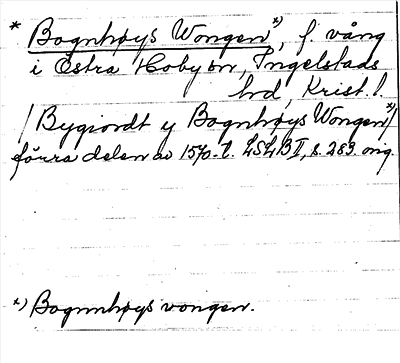 * Bognhøys Wongen*), f. vång
i Östra Hoby sn, Ingelstads
hrd, Krist. l.
/Bygiordt y Bognhøys Wongen*)/
förra delen av 1570-t. LSLB II, s. 283. orig.
*) Bognnhøys vongen.